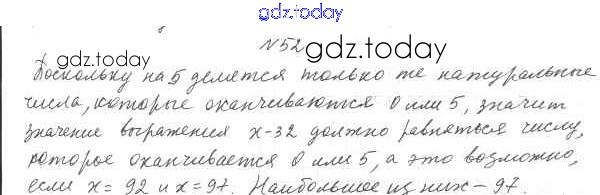 gdz.today
№52
gdz.today
Поскольку на 5 делятся только те натуральные
числа, которые оканчиваются 0 или 5, значит
значение выражения х-32 должно равняться числу,
которое оканчивается 0 или 5, а это возможно,
если х = 92 и х = 97. Наибольшее из них - 97.
gdz.today